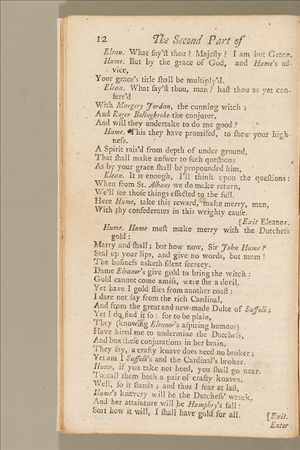 12 The Second Part of
Elean. What say'st thou? Majesty? I am but Grace.
Hume. But by the grace of God, and Hume's ad-
vice,
Your grace's title shall be multiply'd.
Elean. What say'st thou, man? hast thou as yet con-
ferr'd
With Margery Jordan, the cunning witch;
And Roger Bolingbroke the conjurer,
And will they undertake to do me good?
Hume. This they have promised, to shew your high-
ness,
A Spirit rais'd from depth of under ground,
That shall make answer to such questions
As by your grace shall be propounded him,
Elean. It is enough, I'll think upon the questions:
When from St. Albans we do make return,
We'll see those things effected to the full.
Here Hume, take this reward, make merry, man,
With thy confederates in this weighty cause.
[Exit Eleanor.
Hume. Hume must make merry with the Dutchess
gold:
Marry and shall; but how now, Sir John Hume?
Seal up your lips, and give no words, but mum!
The business asketh silent secrecy.
Dame Eleanor's give gold to bring the witch:
Gold cannot come amiss, were she a devil.
Yet have I gold flies from another coast:
I dare not say from the rich Cardinal,
And from the great and new-made Duke of Suffolk;
Yet I do find it so: for to be plain,
They (knowing Eleanor's aspiring humour)
Have hired me to undermine the Dutchess,
And buz these conjurations in her brain.
They say, a crafty knave does need no broker;
Yet am I Suffolk's and the Cardinal's broker.
Hume, if you take not heed, you shall go near
To call them both a pair of crafty knaves.
Well, so it stands; and thus I fear at last,
Hume's knavery will be the Dutchess' wrack,
And her attainture will be Humphry's fall:
Sort how it will, I shall have gold for all. [Exit.
Enter